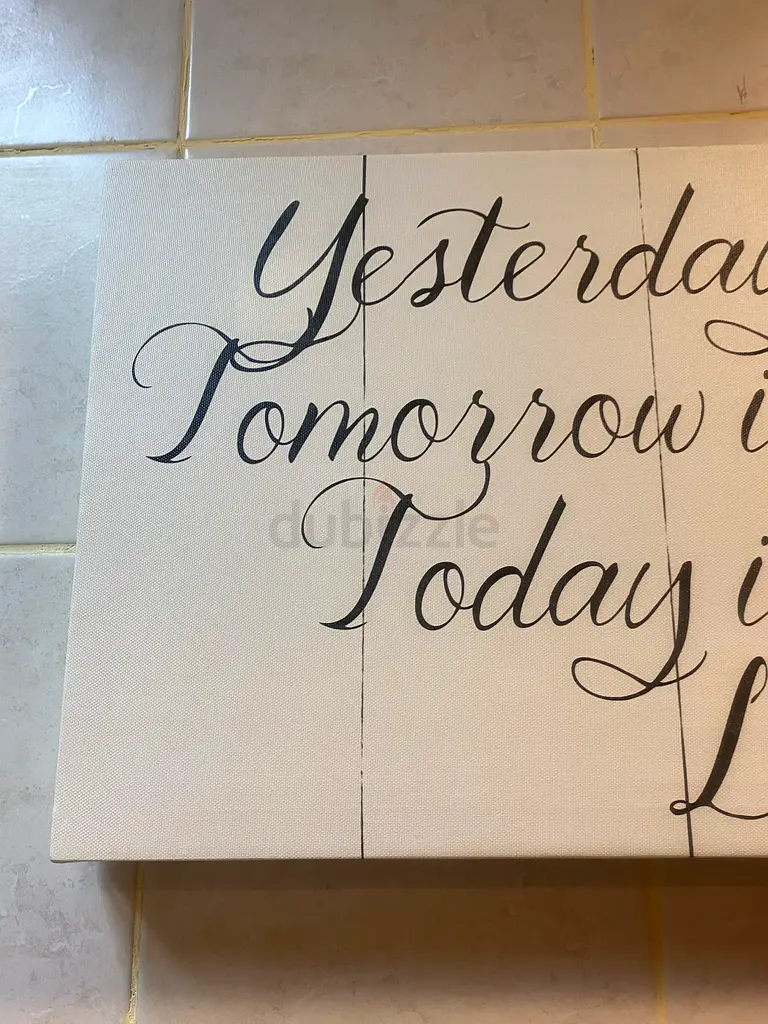 Yesterday
Tomorrow i
Today i
L
dubizzle